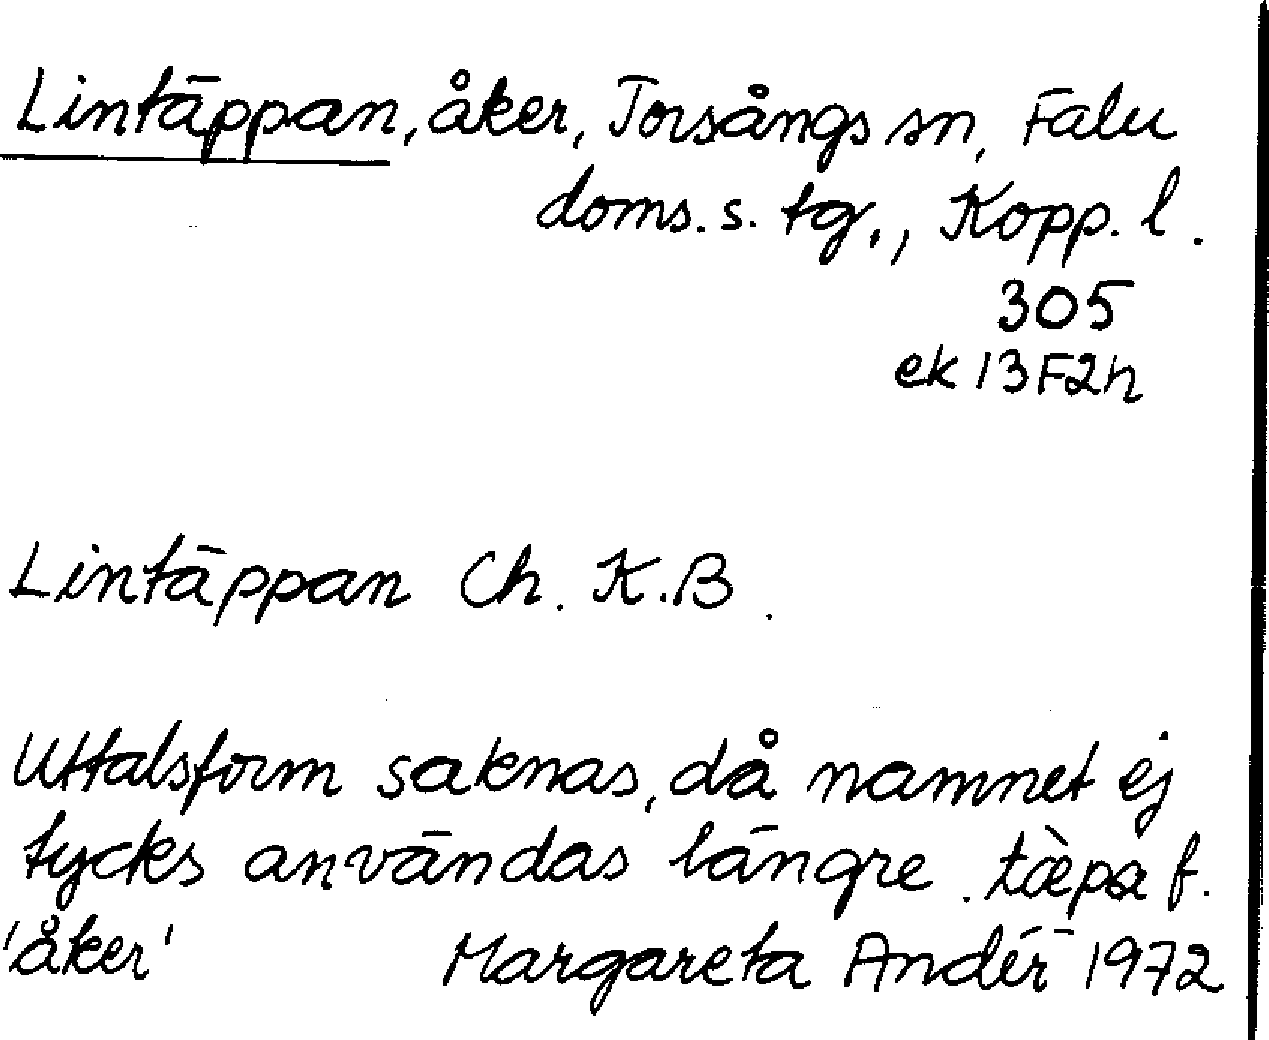 Lintäppan, åker, Torsångs sn, Falu
doms. s. tg., Kopp. l.
305
ek 13F2h
Lintäppan Ch. K.B.
Uttalsform saknas, då namnet ej
tycks användas längre. tæ̀pa f.
'åker' Margareta Andér 1972